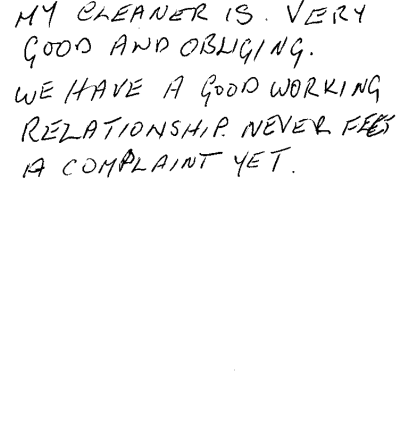 MY CLEANER IS. VERY
GOOD AND OBLIGING.
WE HAVE A GOOD WORKING
RELATIONSHIP. NEVER
A COMPLAINT YET.